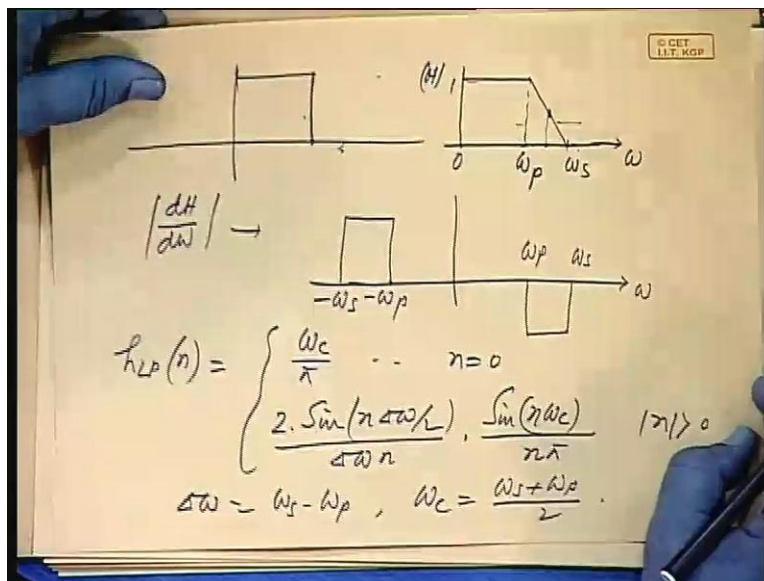 © CET
I.I.T. KGP
|H| 1
0 ωp ωs ω
|dH/dω| →
ωp ωs
-ωs -ωp ω
hLP(n) = { ωc/π .. n=0
2. Sin(nΔω/2)/Δωn . Sin(nωc)/nπ |n|>0
Δω = ωs - ωp , ωc = ωs+ωp/2 .